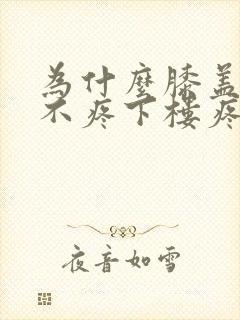 為什麼膝蓋
不疼下樓疼
夜音如雪